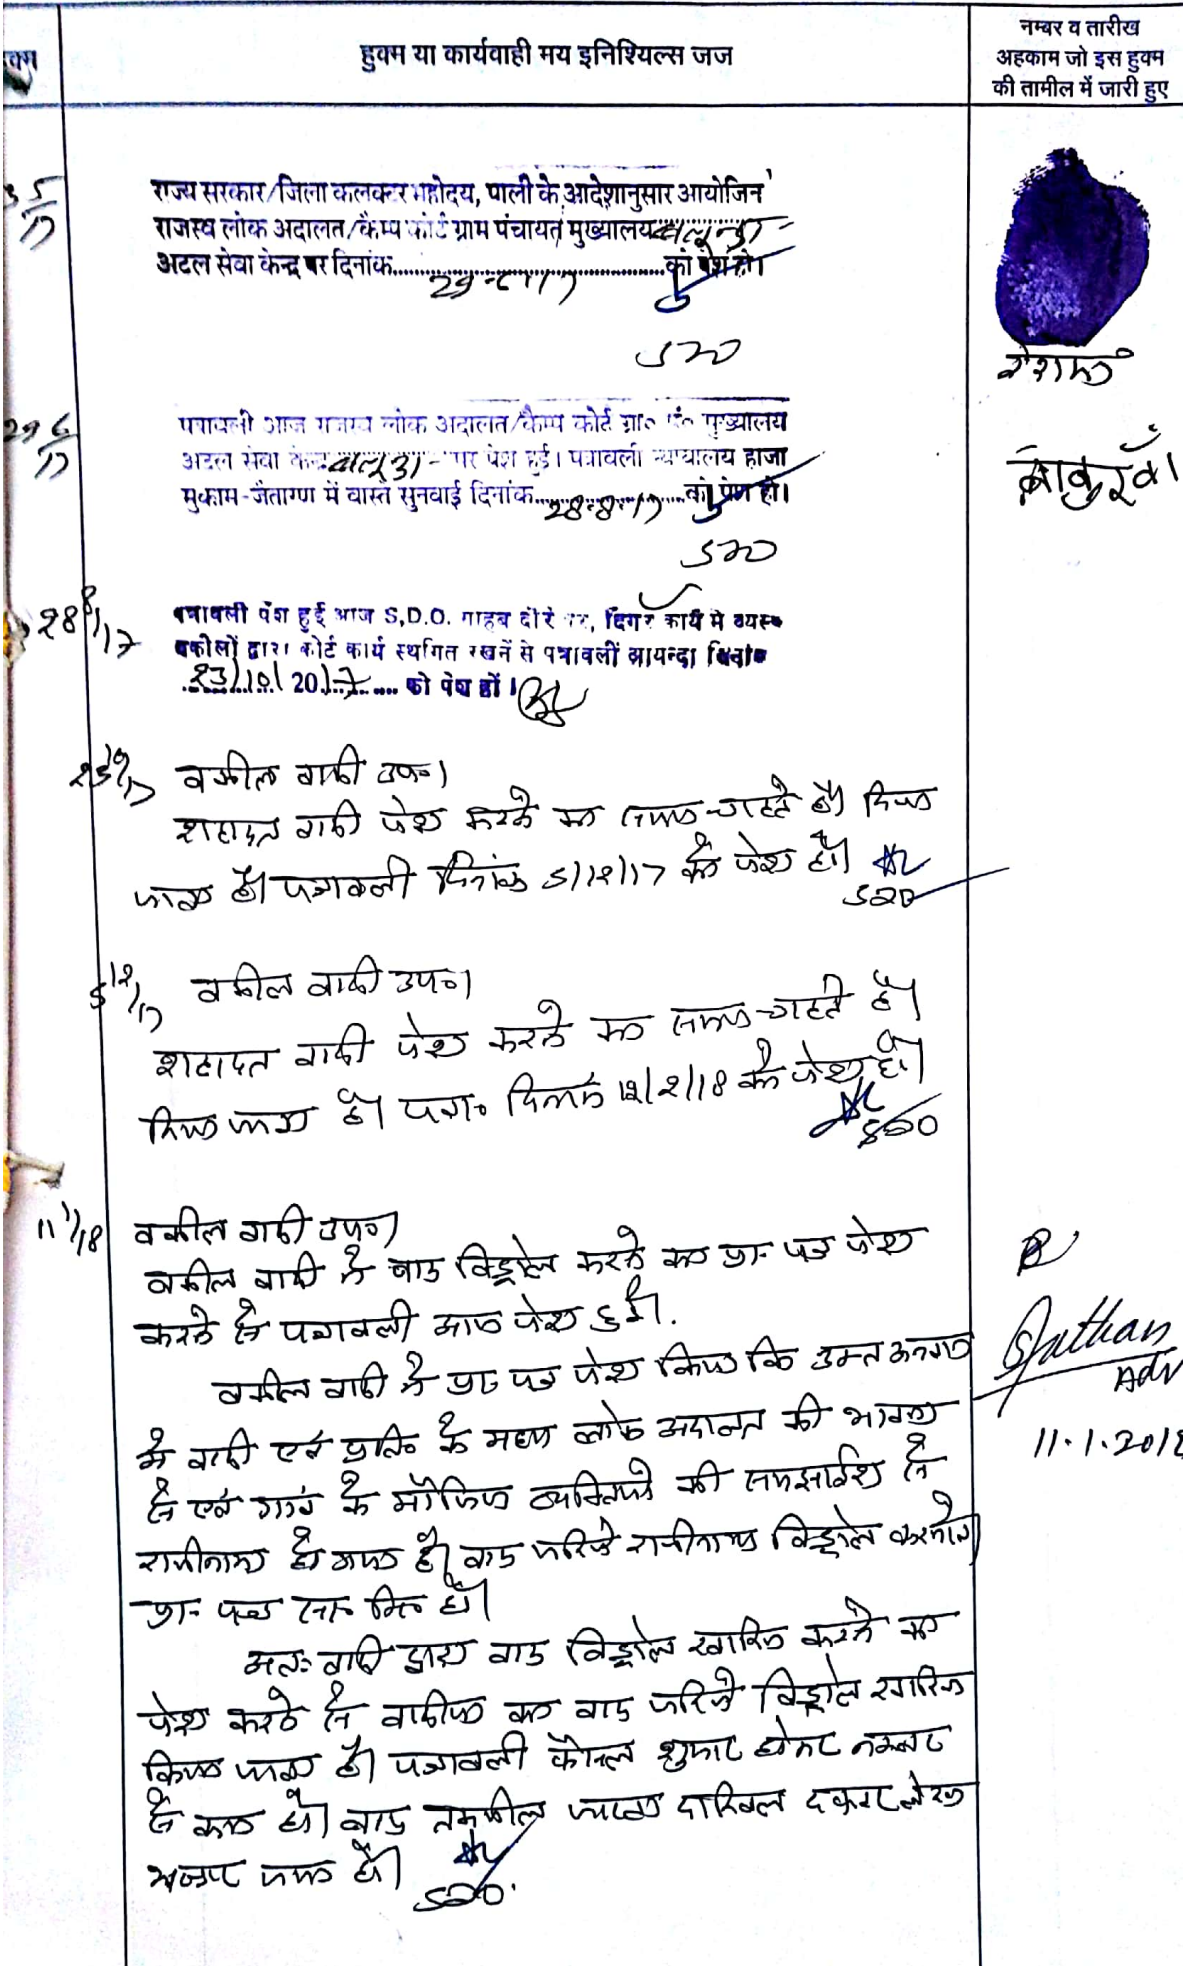 हुक्म या कार्यवाही मय इनिशियल्स जज
नम्बर व तारीख
अहकाम जो इस हुक्म
की तामील में जारी हुए
राज्य सरकार/जिला कलक्टर महोदय, पाली के आदेशानुसार आयोजित
राजस्व लोक अदालत/कैम्प कोर्ट ग्राम पंचायत मुख्यालय
अटल सेवा केन्द्र पर दिनांक 29-6-17 को पेश हो।
SDO
29/6/17
पत्रावली आज राजस्व लोक अदालत/कैम्प कोर्ट ग्रा० पं० मुख्यालय
अटल सेवा केन्द्र पर पेश हुई। पत्रावली न्यायालय हाजा
मुकाम-जैतारण में वास्ते सुनवाई दिनांक 28-8-17 को पेश हो।
SDO
28/8/17
पत्रावली पेश हुई आज S.D.O. साहब दौरे पर, दिगर कार्य मे व्यस्त
वकीलों द्वारा कोर्ट कार्य स्थगित रखनें से पत्रावली आयन्दा दिनांक
23/10/2017 को पेश हों।
23/10/17
वकील वादी उप०।
शहादत वादी पेश करने का समय चाहते है। दिया
जाता है। पत्रावली दिनांक 5/12/17 को पेश हो।
SDO
5/12/17
वकील वादी उप०।
शहादत वादी पेश करने का समय चाहते है।
दिया जाता है। पत्रा० दिनांक 12/2/18 को पेश हो।
SDO
11/1/18
वकील वादी उप०।
वकील वादी ने वाद विड्रोल करने का प्रा- पत्र पेश
करने से पत्रावली आज पेश हुई।
वकील वादी ने प्रा० पत्र पेश किया कि उक्त प्रकरण
में वादी एवं प्रति० के मध्य लोक अदालत की भावना
से एवं गांव के मौजिज व्यक्तियो की समझाईश से
राजीनामा हो गया है। वाद जरिये राजीनामा विड्रोल करने का
प्रा- पत्र
अतः वादी द्वारा वाद विड्रोल खारिज करने का
पेश करने से वादीया का वाद जरिये विड्रोल खारिज
किया जाता है। पत्रावली फैसल शुमार होकर नम्बर
से कम हो। वाद तकमील जाब्ता दाखिल दफ्तर
SDO
Adv
11.1.2018